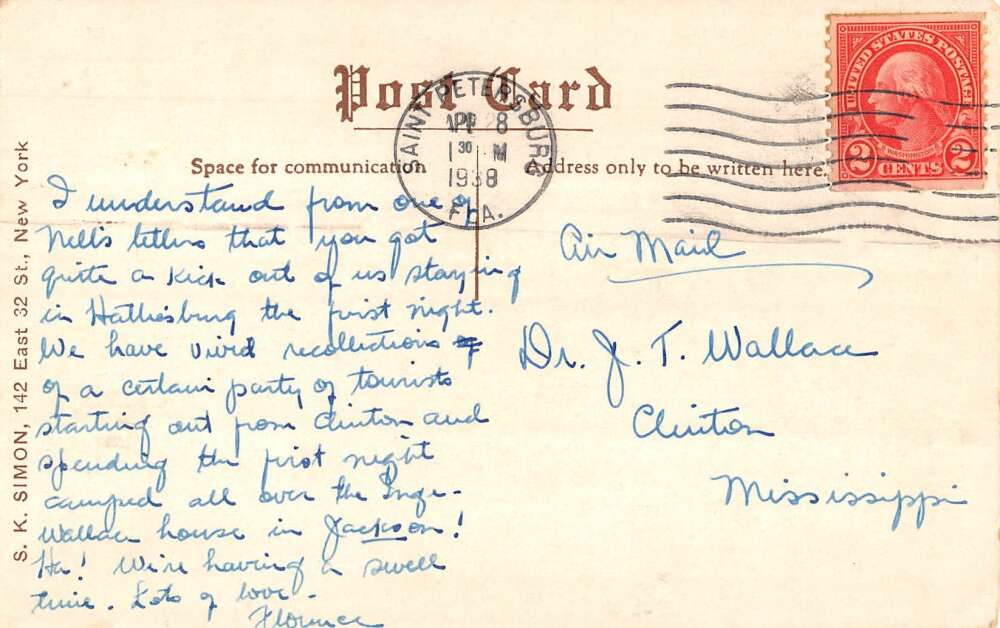 Post Card
Space for communication
Address only to be written here.
SAINT PETERSBURG
APR 8
1 30 M
1938
FLA.
UNITED STATES POSTAGE
WASHINGTON
2 CENTS 2
S. K. SIMON, 142 East 32 St., New York
I understand from one of
Nell's letters that you got
quite a kick out of us staying
in Hattiesburg the first night.
We have vivid recollections of
of a certain party of tourists
starting out from Clinton and
spending the first night
camped all over the Inge-
Wallace house in Jackson!
Ha! We're having a swell
time. Lots of love.
Florence
Air Mail
Dr. J. T. Wallace
Clinton
Mississippi